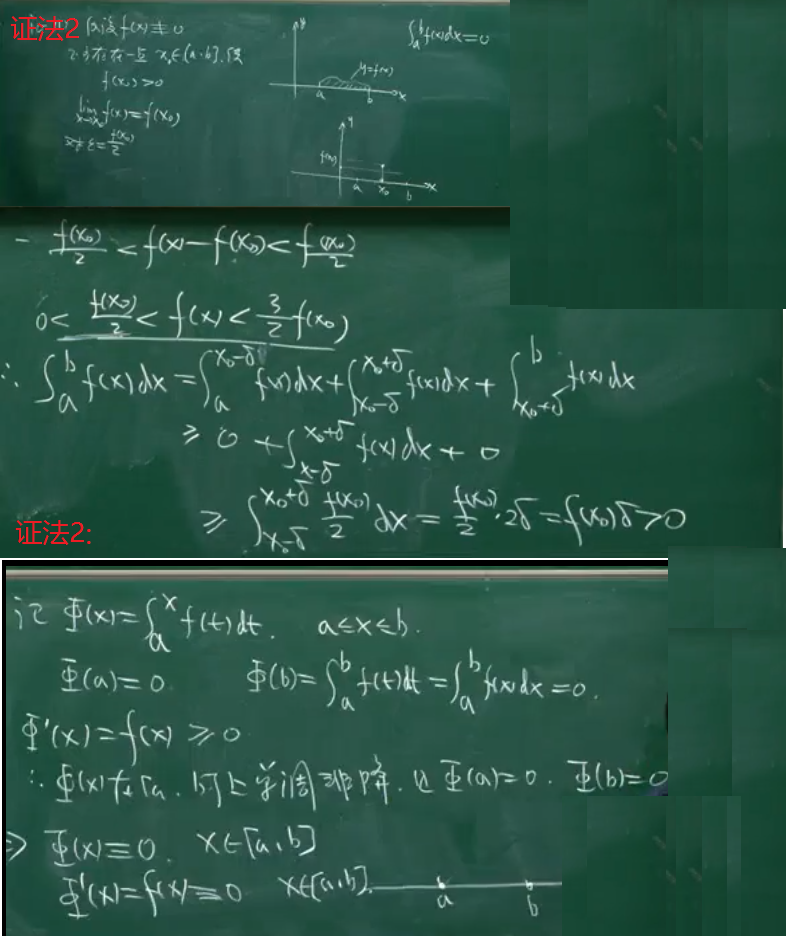 证法2
反设 f(x)≢0
∫_a^b f(x)dx=0
则存在一点 x₀∈[a,b],使
f(x₀)>0
y
y=f(x)
a b x
lim_{x→x₀} f(x)=f(x₀)
对 ε=f(x₀)/2
y
f(x₀)
a x₀ b x
-f(x₀)/2<f(x)-f(x₀)<f(x₀)/2
0<f(x₀)/2<f(x)<3/2 f(x₀)
∴ ∫_a^b f(x)dx=∫_a^{x₀-δ} f(x)dx+∫_{x₀-δ}^{x₀+δ} f(x)dx+∫_{x₀+δ}^b f(x)dx
≥0+∫_{x-δ}^{x₀+δ} f(x)dx+0
≥∫_{x₀-δ}^{x₀+δ} f(x₀)/2 dx=f(x₀)/2·2δ=f(x₀)δ>0
证法2:
记 Φ(x)=∫_a^x f(t)dt. a≤x≤b.
Φ(a)=0. Φ(b)=∫_a^b f(t)dt=∫_a^b f(x)dx=0.
Φ'(x)=f(x)≥0
∴ Φ(x)在[a,b]上单调非降. 又 Φ(a)=0. Φ(b)=0
⇒ Φ(x)≡0. x∈[a,b]
Φ'(x)=f(x)≡0 x∈[a,b].
a b